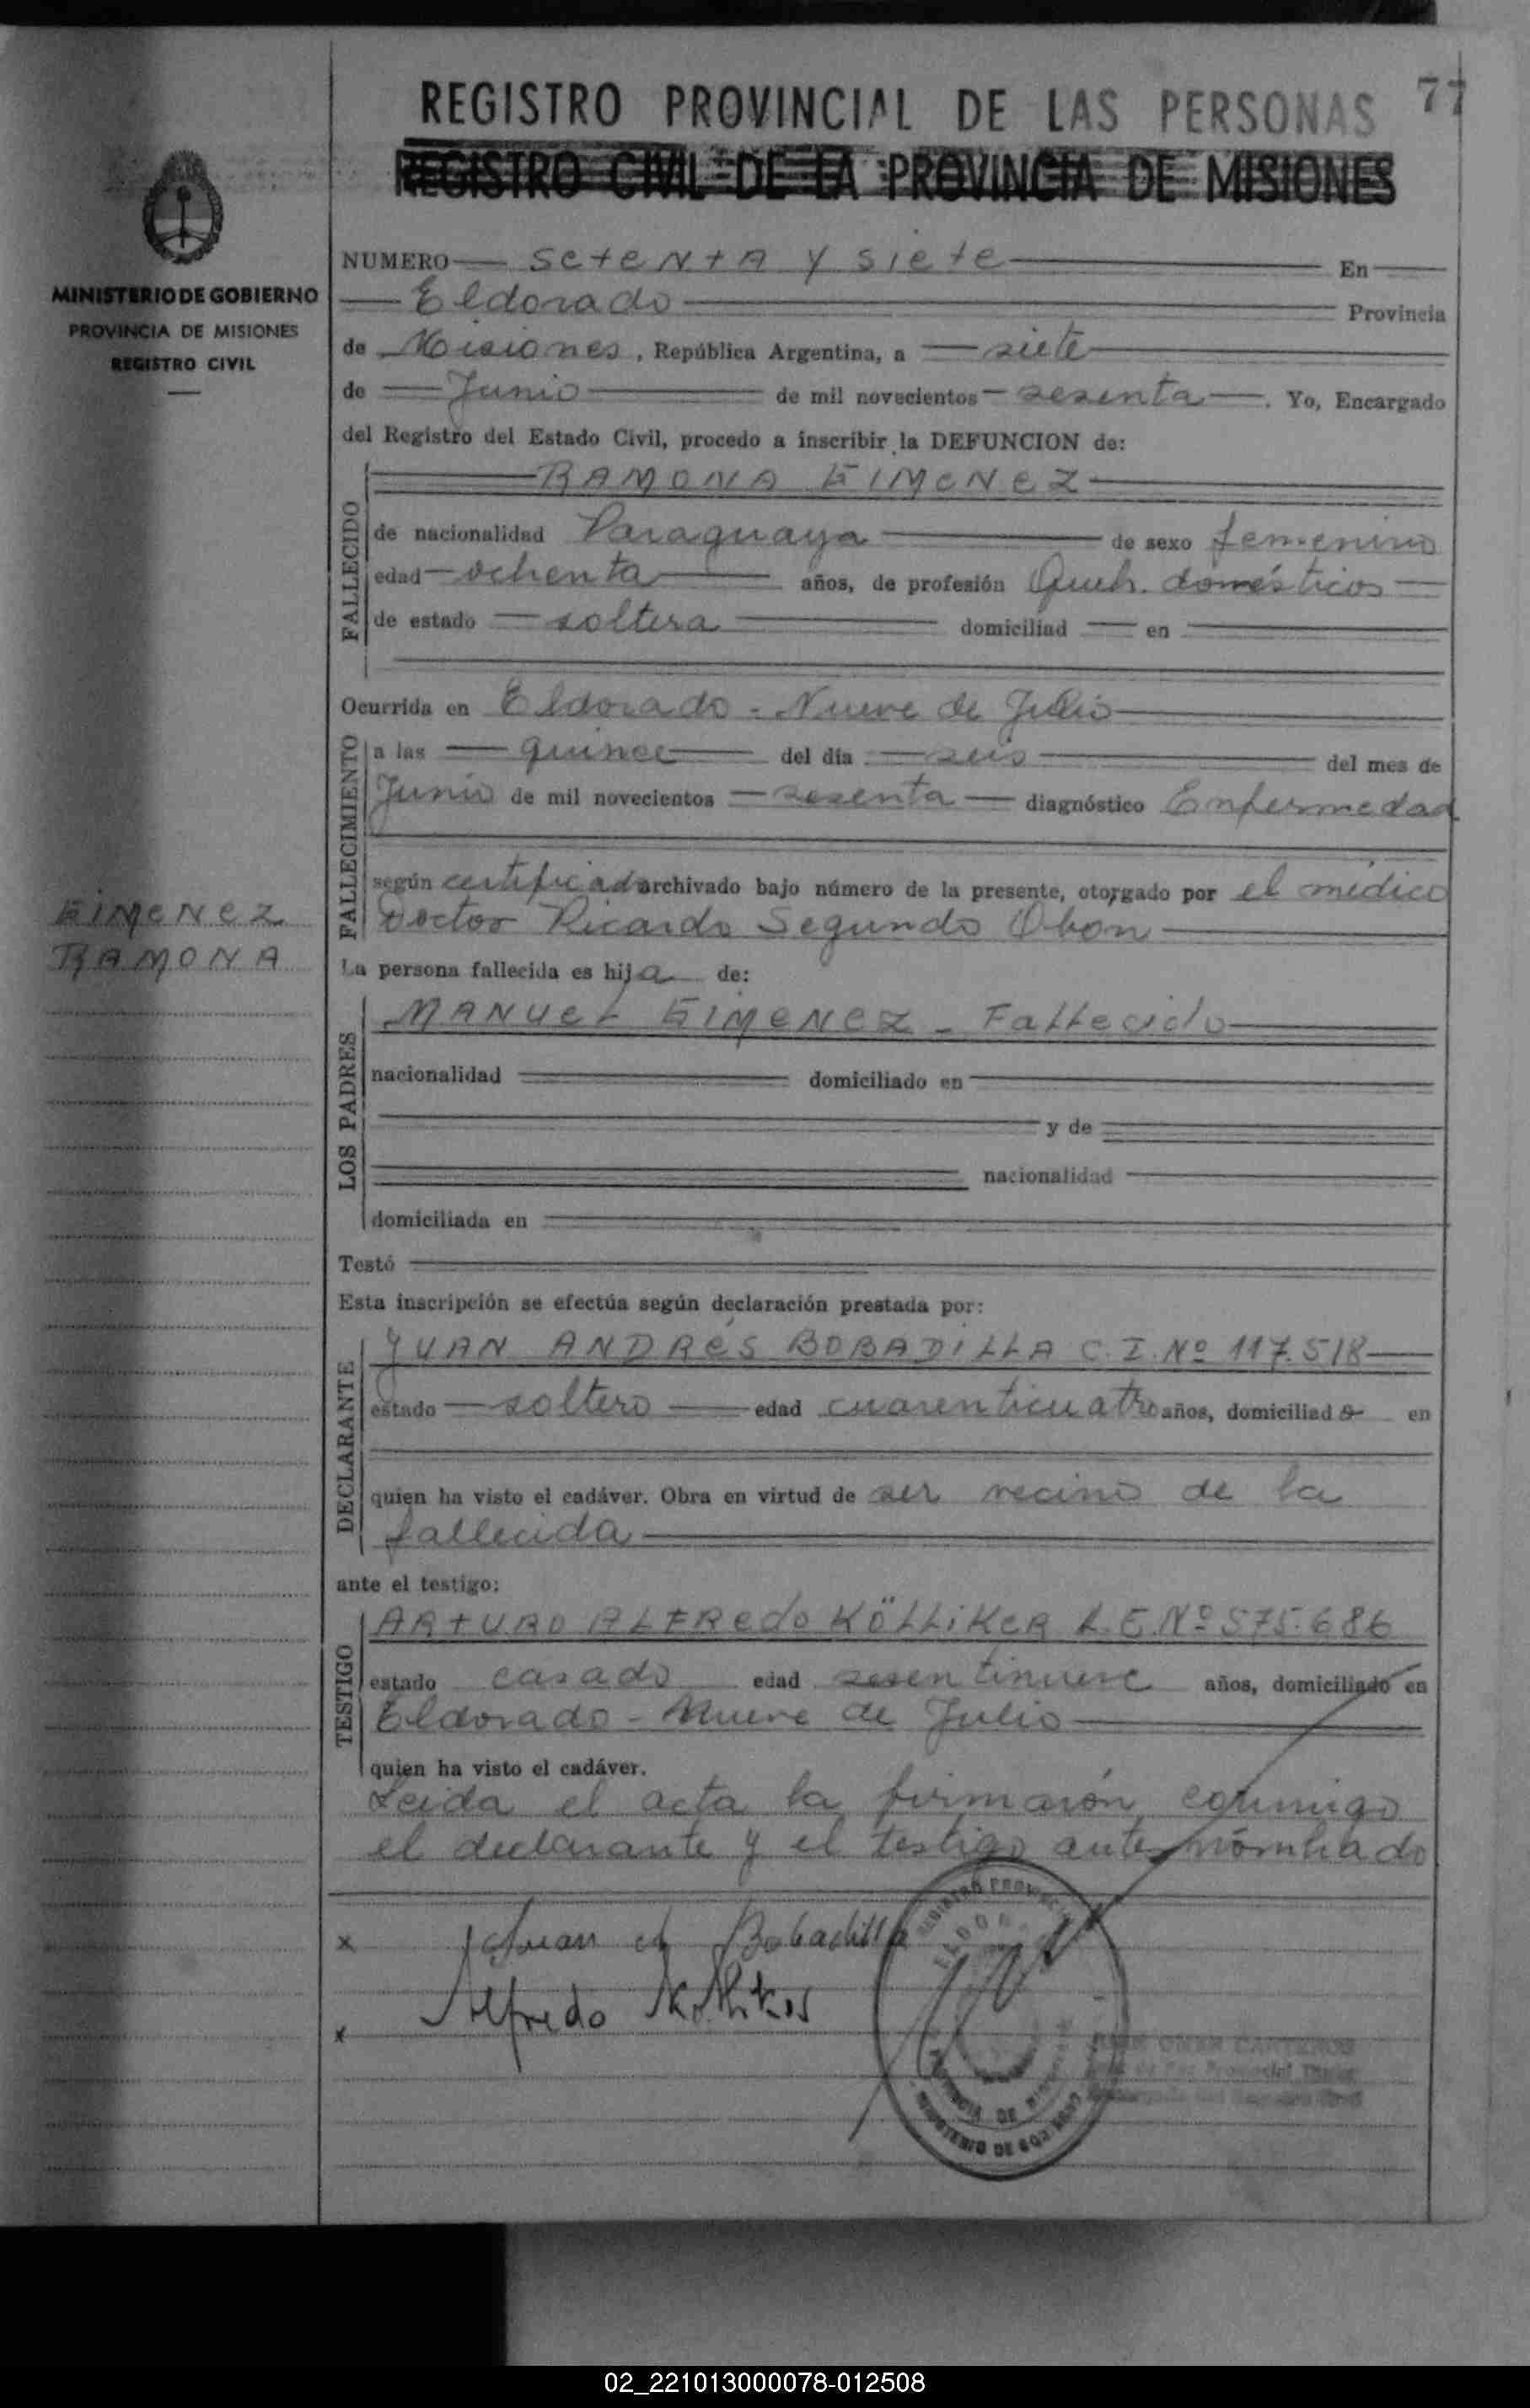 77
REGISTRO PROVINCIAL DE LAS PERSONAS
REGISTRO CIVIL DE LA PROVINCIA DE MISIONES
MINISTERIO DE GOBIERNO
PROVINCIA DE MISIONES
REGISTRO CIVIL
GIMENEZ
RAMONA
NUMERO setenta y siete En
Eldorado Provincia
de Misiones, República Argentina, a siete
de Junio de mil novecientos sesenta. Yo, Encargado
del Registro del Estado Civil, procedo a inscribir la DEFUNCION de:
RAMONA GIMENEZ
FALLECIDO
de nacionalidad Paraguaya de sexo femenino
edad ochenta años, de profesión Queh. domésticos
de estado soltera domiciliad en
Ocurrida en Eldorado - Nueve de Julio
FALLECIMIENTO
a las quince del día seis del mes de
Junio de mil novecientos sesenta diagnóstico Enfermedad
según certificado archivado bajo número de la presente, otorgado por el médico
Doctor Ricardo Segundo Obon
La persona fallecida es hija de:
LOS PADRES
MANUEL GIMENEZ - Fallecido
nacionalidad domiciliado en
y de
nacionalidad
domiciliada en
Testó
Esta inscripción se efectúa según declaración prestada por:
DECLARANTE
JUAN ANDRÉS BOBADILLA C.I. Nº 117.518
estado soltero edad cuarenticuatro años, domiciliado en
quien ha visto el cadáver. Obra en virtud de ser vecino de la
fallecida
ante el testigo:
TESTIGO
ARTURO ALFREDO KÖLLIKER L.E. Nº 575.686
estado casado edad sesentinueve años, domiciliado en
Eldorado - Nueve de Julio
quien ha visto el cadáver.
Leida el acta la firmarón conmigo
el declarante y el testigo antes nómbrado
x Juan A Bobadilla
x Alfredo Kölliker
MINISTERIO DE GOBIERNO
02_221013000078-012508